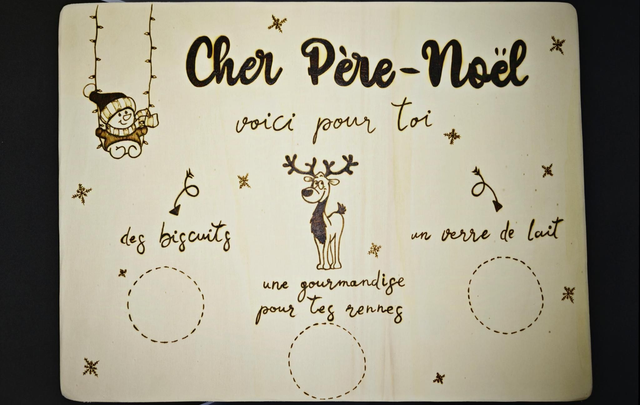 Cher Père-Noël
voici pour toi
des biscuits
un verre de lait
une gourmandise
pour tes rennes